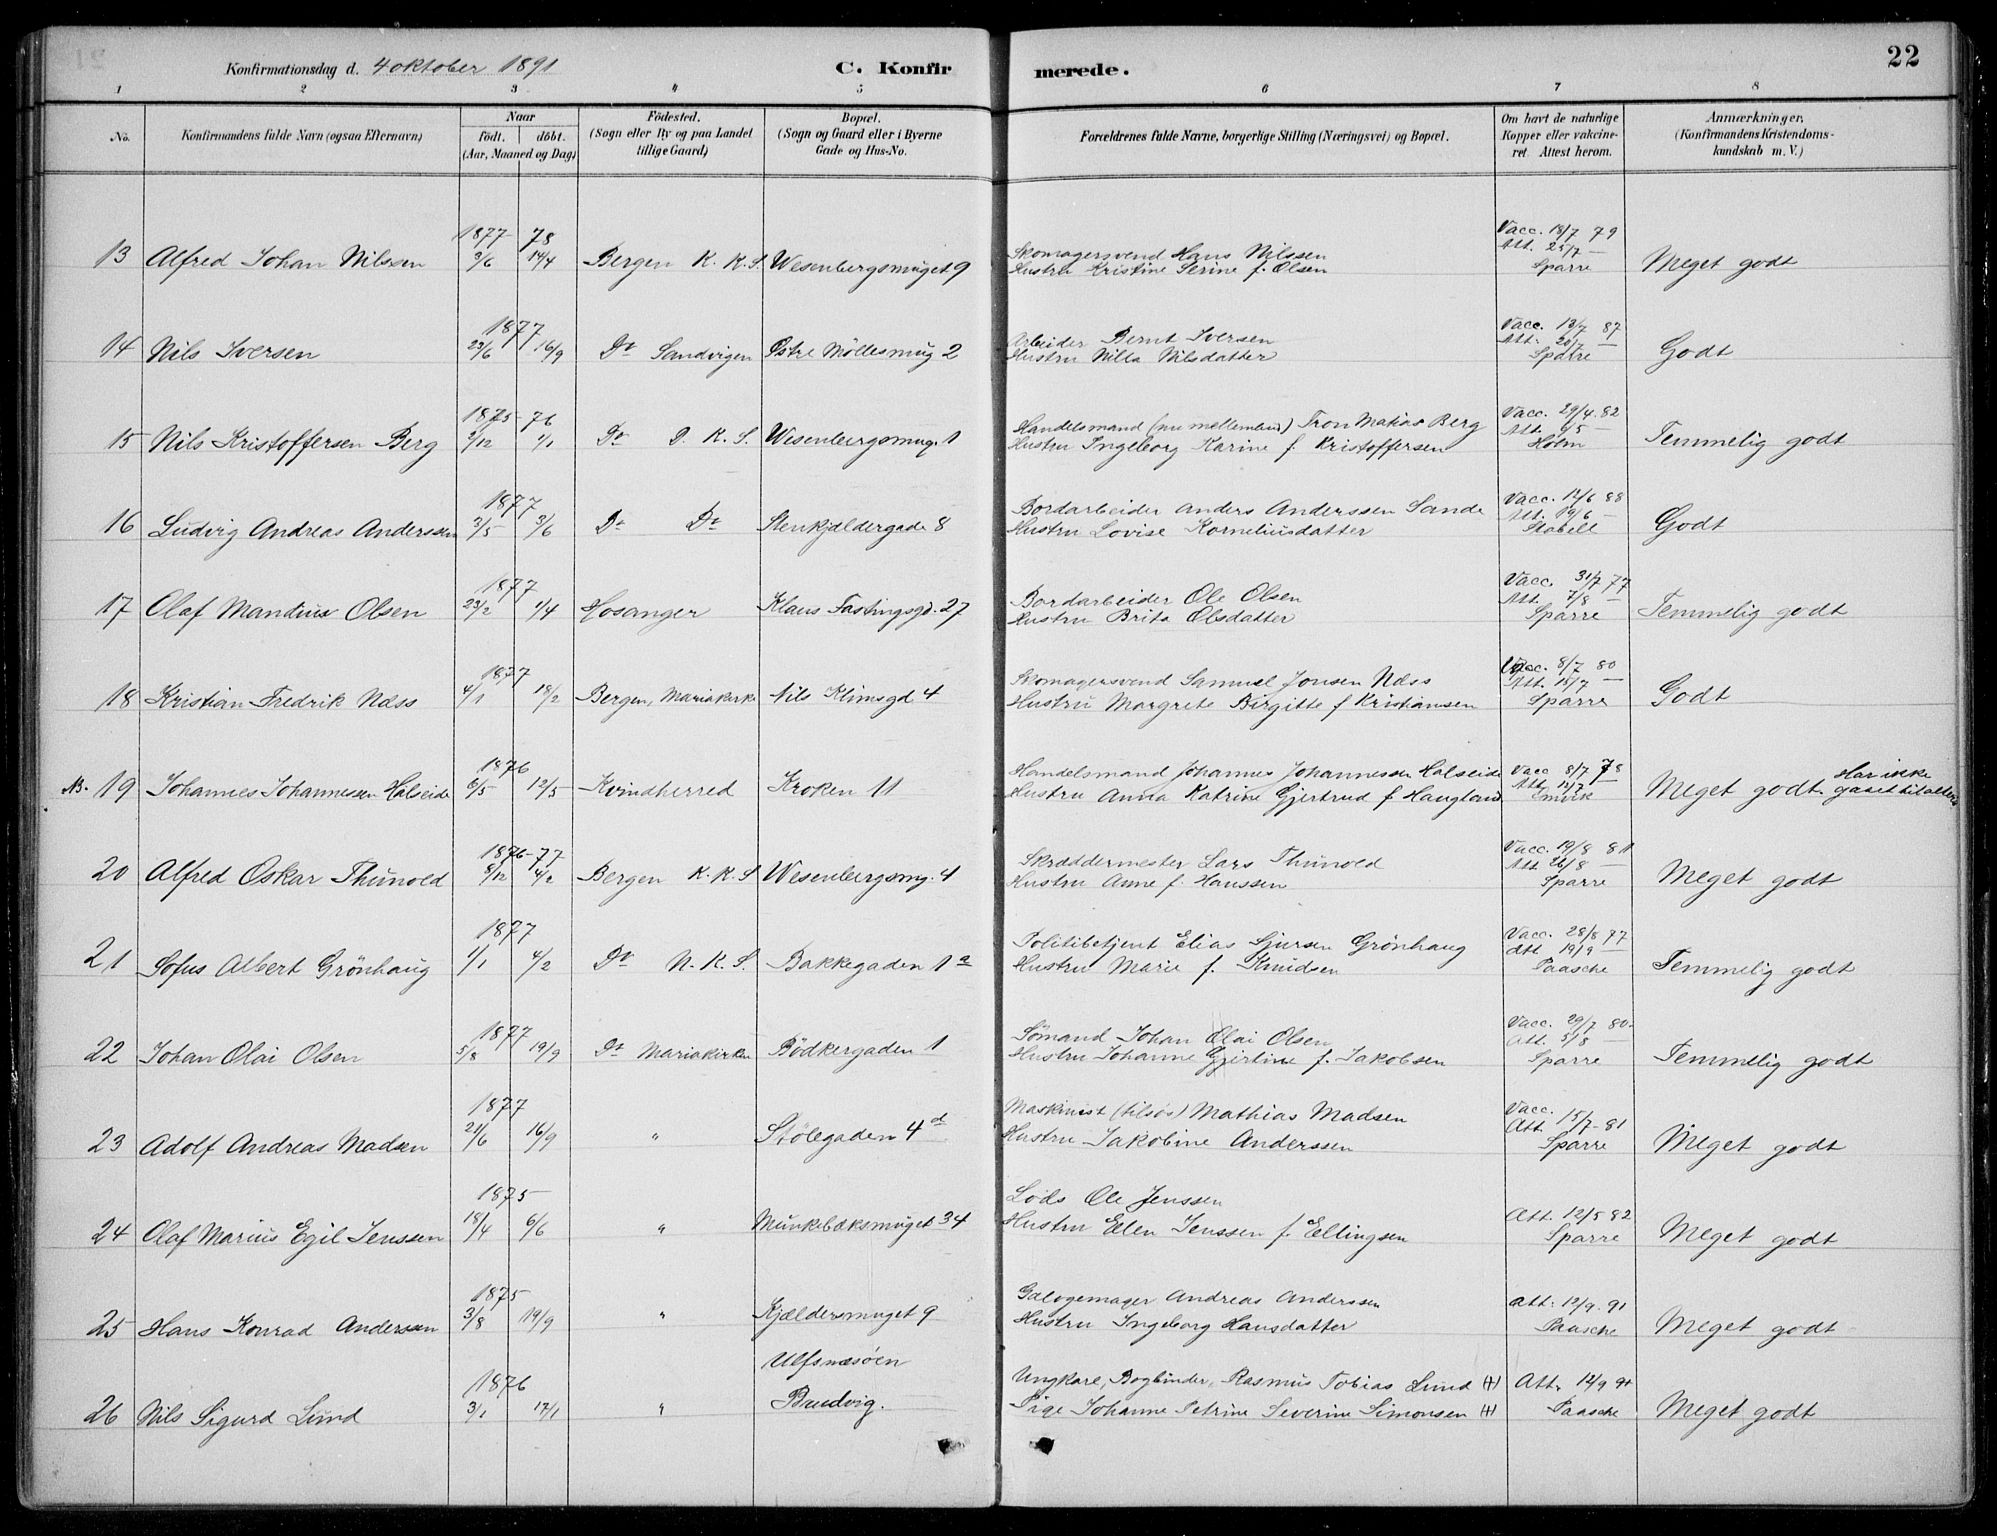 Konfirmationsdag d. 4 oktober 1891
C. Konfirmerede.
22
1 2 3 4 5 6 7 8
No.
Konfirmandens fulde Navn (ogsaa Efternavn)
Naar
födt. döbt.
(Aar, Maaned og Dag)
Födested.
(Sogn eller By og paa Landet
tillige Gaard)
Bopæl.
(Sogn og Gaard eller i Byerne
Gade og Hus-No.
Forældrenes fulde Navne, borgerlige Stilling (Næringsvei) og Bopæl.
Om havt de naturlige
Kopper eller vakcine-
ret. Attest herom.
Anmærkninger.
(Konfirmandens Kristendoms-
kundskab m. V.)
1877 78 Vacc. 18/7 79
13 Alfred Johan Nilssen 3/6 14/4 Bergen K. K. S. Wesenbergsmuget 9 Skomagersvend Hans Nilssen Att. 25/7 —
Hustru Kristine Serine f. Olsen Sparre Meget godt
1877 Vacc. 13/7 87
14 Nils Iversen 23/6 16/9 Do Sandvigen Östre Möllesmug 2 Arbeider Bernt Iversen Att. 20/7 —
Hustru Nilla Nilsdatter Sparre Godt
1875 76 Vacc. 29/4 82
15 Nils Kristoffersen Berg 2/12 1/1 Do D. K. S. Wesenbergsmug. 1 Handelsmand Tron Matias Berg Att. 6/5 —
Hustru Ingeborg Karine f. Kristoffersen Holm Temmelig godt
1877 Vacc. 12/6 88
16 Ludvig Andreas Anderssen 3/5 3/6 Do Do Stenkjældergade 8 Bordarbeider Anders Anderssen Sande Att. 19/6 —
Hustru Lovise Korneliusdatter Stabell Godt
1877 Vacc. 31/7 77
17 Olaf Mandius Olsen 23/2 1/4 Hosanger Klaus Fastingsgd. 27 Bordarbeider Ole Olsen Att. 7/8 —
Hustru Brita Olsdatter Sparre Temmelig godt
1877 Vacc. 8/7 80
18 Kristian Fredrik Næss 4/1 18/2 Bergen, Mariakirke Nils Klimsgd. 4 Skomagersvend Samuel Jonsen Næss Att. 15/7 —
Hustru Margrete Birgitte f Kristiansen Sparre Godt
1876 Vacc 8/7 78
NB. 19 Johannes Johannessen Halseide 6/5 12/5 Kvindherred Kroken 11 Handelsmand Johannes Johannessen Halseide Att.
Hustru Anna Katrine Gjertrud f Haugland Meget godt. Har ikke gaaet til alters
1876-77 Vacc. 19/8 81
20 Alfred Oskar Thunold 8/12 4/2 Bergen K. K. S Wesenbergsmg. 4 Skræddermester Lars Thunold Att 26/8 —
Hustru Anne f. Hanssen Sparre Meget godt
1877 Vacc. 28/8 77
21 Sofus Albert Grönhaug 1/1 4/2 Do N. K. S. Bakkegaden 1a Politibetjent Elias Sjursen Grönhaug Att 19/9 —
Hustru Marie f. Knudsen Paasche Temmelig godt
1877 Vacc. 29/7 80.
22 Johan Olai Olsen 5/8 19/9 Do Mariakirken Bödkergaden 1 Sömand Johan Olai Olsen Att. 5/8 —
Hustru Johanne Gjertine f. Jakobsen Sparre Temmelig godt
1877 Vacc.
23 Adolf Andreas Madsen 21/6 16/9 " Stölegaden 4d Maskinist (tilsös) Mathias Madsen Att. 15/7 81
Hustru Jakobine Anderssen Sparre Meget godt
1875 Lods Ole Jenssen
24 Olaf Marius Egil Jenssen 18/4 6/6 " Munkebæksmuget 34 Hustru Ellen Jenssen f. Ellingsen Att. 12/5 82
Sparre Meget godt
1875 Galogemager Andreas Anderssen Att. 12/9 91
25 Hans Konrad Anderssen 3/8 19/9 " Kjældersmuget 9 Hustru Ingeborg Hansdatter Paasche Meget godt
1876 Ulfsnæsöen Ungkarl, Bogbinder, Rasmus Tobias Lund Att. 12/9 91
26 Nils Sigurd Lund 3/1 17/1 " Bruvig. Pige Johanne Petrine Severine Simonsen Paasche Meget godt